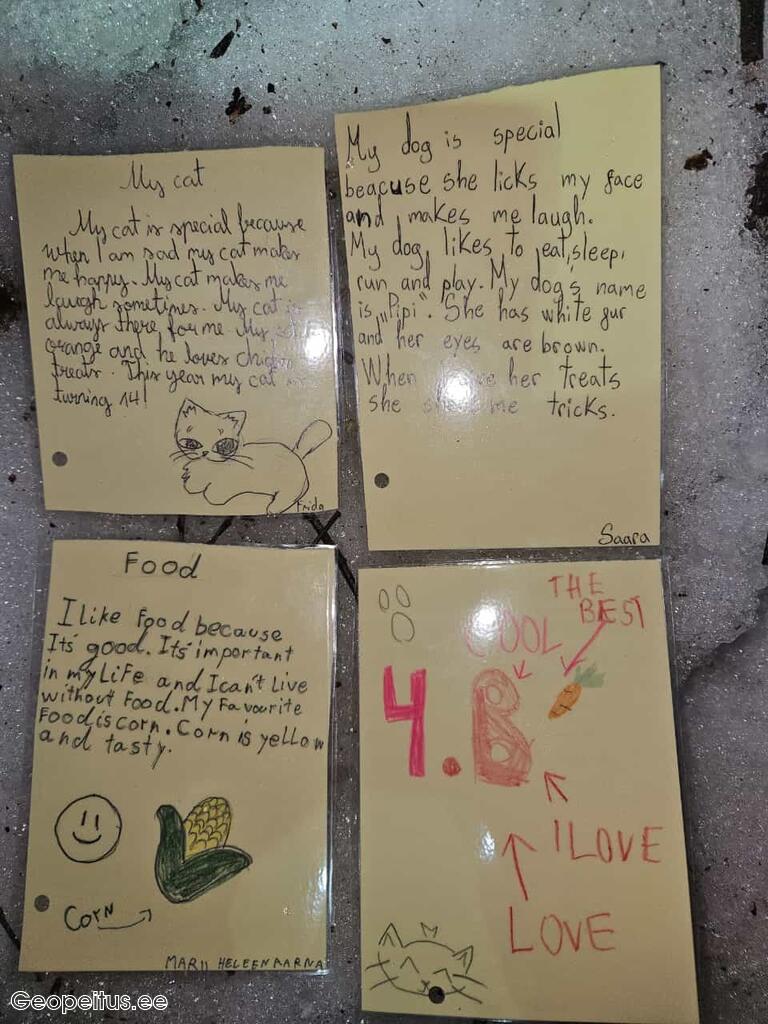 My cat
My cat is special because
when I am sad my cat makes
me happy. My cat makes me
laugh sometimes. My cat is
always there for me. My
orange and he loves
treats. This year my cat is
turning 14!
Frida
My dog is special
beacuse she licks my face
and makes me laugh.
My dog likes to eat, sleep,
run and play. My dog's name
is „Pipi". She has white gur
and her eyes are brown.
When her treats
she me tricks.
Saara
Food
I like Food because
It's good. It's important
in my Life and I can't Live
without Food. My Favourite
Food is corn. Corn is yellow
and tasty.
Corn
MARII HELEEN AARNA
THE
BEST
COOL
4.B
I LOVE
LOVE
Geopeitus.ee